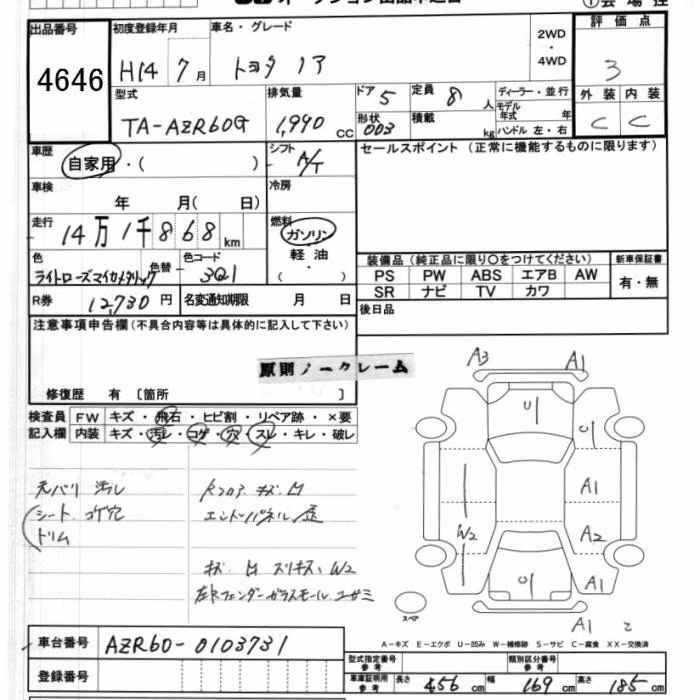 オークション出品申込書 ①会場控
出品番号 初度登録年月 車名・グレード 2WD・4WD 評価点
4646 H14 7月 トヨタ ノア 3
型式 排気量 ドア 5 定員 8 人 ディーラー・並行 外装 内装
TA-AZR60G 1,990 CC 形状 003 積載 kg モデル年式 年 C C
ハンドル 左・右
車歴 自家用・( ) シフト A/T セールスポイント (正常に機能するものに限ります)
車検 年 月( 日) 冷房
走行 14万1千868 km 燃料 ガソリン
軽油
・
( )
色 ライトローズマイカメタリック 色替 色コード 3Q1 装備品 (純正品に限り○をつけてください) 新車保証書
PS PW ABS エアB AW 有・無
SR ナビ TV カワ
R券 12,730 円 名変通知期限 月 日 後日品
注意事項申告欄(不具合内容等は具体的に記入して下さい)
原則ノークレーム
修復歴 有 [箇所 ]
検査員 FW キズ・飛石・ヒビ割・リペア跡・×要
記入欄 内装 キズ・汚レ・コゲ・穴・スレ・キレ・破レ
A3 A1
U U
内バリ 汚レ
シート コゲ穴 エンドパネル
トリム
A1
W2 A2
キズ 凹 スリキズ、W2
U A1
スペア A1 2
A-キズ E-エクボ U-凹み W-補修跡 S-サビ C-腐食 XX-交換済
車台番号 AZR60-0103731
登録番号
型式指定番号 参考 類別区分番号 参考
車庫証明用 参考 長さ 456 cm 幅 169 cm 高さ 185 cm